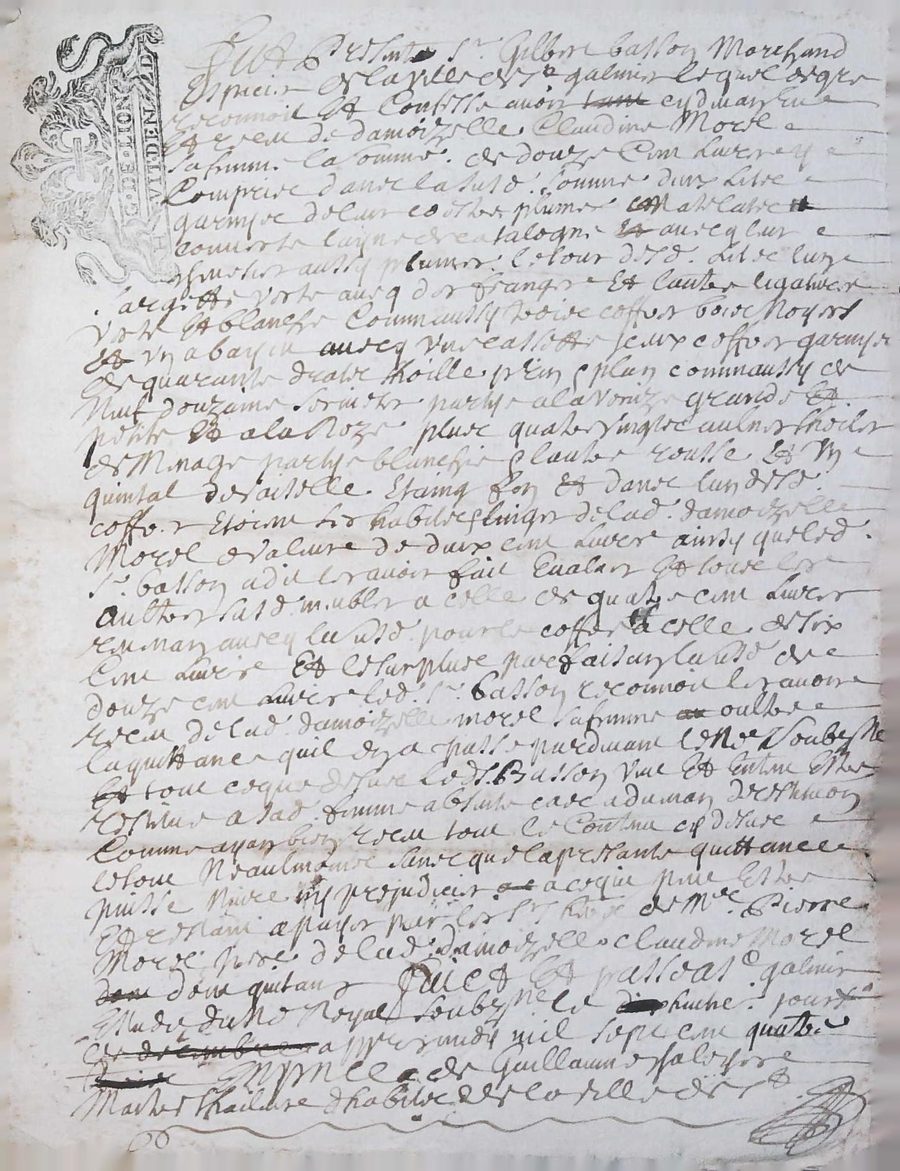 G. DE. LION
VIT. DEN
Fut Presant Sr Gilbert basson Marchand
Espicier de la ville de St galmier lequel de gre
reconnoit Et Confesse avoir cydevant
Et receu de damoizelle Claudine Morel
sa femme la somme de douze Cent Livres
Compries dans la susd. somme deux Lits
garnys de leur coettes plumes Matelats
couverte layne de catalogne avecq leur
aussy plumes le tour desd. Lits l'un
sargette verte avecq des frange Et l'autre
verte Et blanche Comm'aussy trois coffres bois Noyers
Et un avecq une cassette ceux coffres garnys
de quarante draps thoille prin plain comm'aussy de
huit douzaine serviettes partye a la Venize grande Et
petite Et a la Roze plus quatre vingts aulnes thoiles
de Menage partye blanchie l'autre rousse Et un
quintal de vaiselle Etaing fin Et dans l'un desd.
coffres Etoient les habits & linges de lad. damoizelle
Morel Evaluer de deux cent Livres ainsy que led.
Sr. basson a dit les avoir fait Evaluer Et tous les
aultres susd. meubles a celle de quatre cent Livres
revenant avecq la susd. pour les coffres a celle de six
Cent Livres Et le surplus parfaisant la susd. de
douze cent Livres led. Sr. basson reconnoit les avoire
receu de lad. damoizelle morel sa femme oultre
la quittance qu'il en a passé pardevant le Nre Soubsne
tout ce que dessus led. Sr. Basson veut Et Entend Estre
restitue a sad. femme absente cas advenant de
Comme ayant bien receu tout le Contenu cy dessus
le tout Neaulmoins sans que la presante quittance
puisse Nuire ny prejudicier a ce qui peut Estre
Et restant a payer par les Srs de Me. Pierre
Morel pere de lad. damoizelle Claudine Morel
dont quitant Faict Et passé a St galmier
Estude du No Royal Soubsne le huitie. jour
apres midy mil sept cent quatre
En prnce de Guillaume
Maitre thailleur d'habits de la ville de St